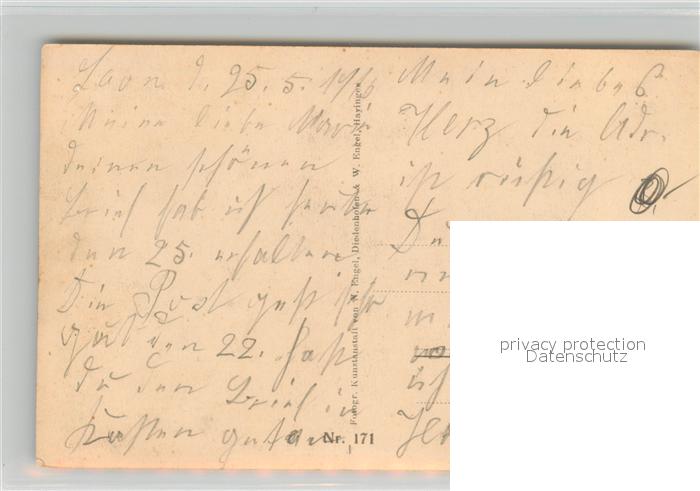 Laon d. 25.5.1916
Meine liebe Maria
deinen schönen
Brief hab ich heute
den 25. erhalten
Die Post geht sehr
gut den 22. hast
du den Brief in
Kasten getan,
Mein liebes
Herz die Adr.
ist richtig
Du
ich
Fotogr. Kunstanstalt von N. Engel, Diedenhofen & W. Engel, Hayingen
Nr. 171
privacy protection
Datenschutz